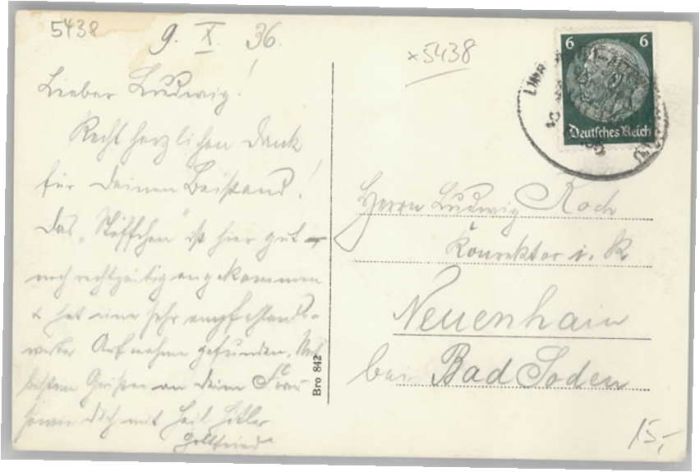 5438
9. X. 36.
x5438
6 6
Deutsches Reich
Lieber Ludwig!
Recht herzlichen Dank
für deinen Beistand!
Das "Stöffchen" ist hier gut
noch rechtzeitig angekommen
& hat eine sehr empfehlens-
werte Aufnahme gefunden. Mit
besten Grüßen an deine Frau
sowie dich mit Heil Hitler
Gottfried
Bro 842
Herrn Ludwig Koch
Konrektor i. R
Neuenhain
bei Bad Soden
15,-